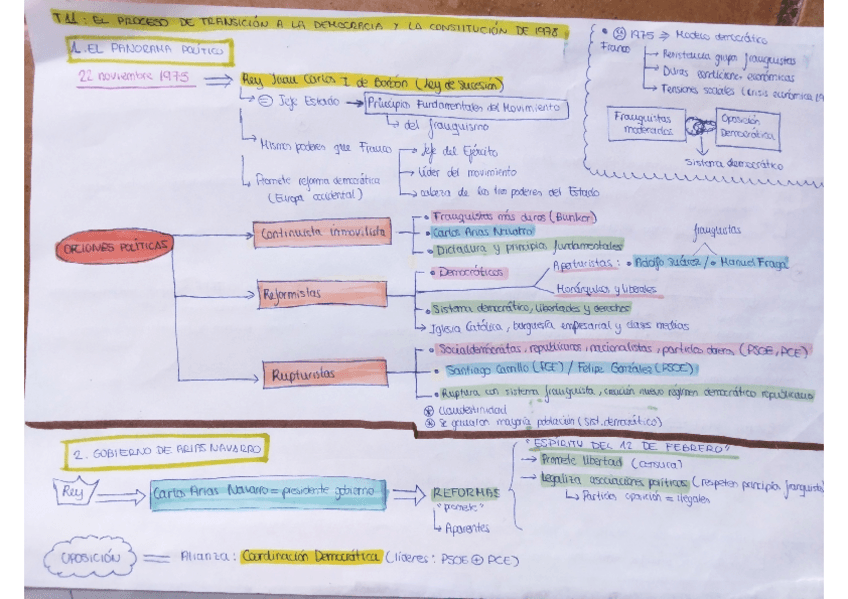 T.11: EL PROCESO DE TRANSICIÓN A LA DEMOCRACIA Y LA CONSTITUCIÓN DE 1978
1. EL PANORAMA POLÍTICO
22 noviembre 1975 ⇒ Rey Juan Carlos I de Borbón (Ley de Sucesión)
Jefe Estado → Principios Fundamentales del Movimiento
↳ del franquismo
Mismos poderes que Franco
→ Jefe del Ejército
→ Líder del movimiento
→ cabeza de los tres poderes del Estado
Promete reforma democrática
(Europa occidental)
1975 ⇒ Modelo democrático
Franco
→ Resistencia grupos franquistas
→ Duras condiciones económicas
→ Tensiones sociales (crisis económica
Franquistas moderados
Oposición Democrática
Sistema democrático
OPCIONES POLÍTICAS
Continuista inmovilista
• Franquistas más duros (Bunker)
• Carlos Arias Navarro
• Dictadura y principios fundamentales
franquistas
Reformistas
• Democráticos
Aperturistas: • Adolfo Suárez / • Manuel Fraga
Monárquicos y liberales
• Sistema democrático, libertades y derechos
→ Iglesia Católica, burguesía empresarial y clases medias
Rupturistas
• Socialdemócratas, republicanos, nacionalistas, partidos obreros (PSOE, PCE)
• Santiago Carrillo (PCE) / Felipe González (PSOE)
• Ruptura con sistema franquista, creación nuevo régimen democrático republicano
clandestinidad
Se ganaron mayoría población (sist. democrático)
2. GOBIERNO DE ARIAS NAVARRO
Rey ⇒ Carlos Arias Navarro = presidente gobierno ⇒ REFORMAS
"promete"
↳ Aparentes
"ESPÍRITU DEL 12 DE FEBRERO"
→ Promete libertad (censura)
→ Legaliza asociaciones políticas (respeten principios franquistas
↳ Partidos oposición = ilegales
OPOSICIÓN = Alianza: Coordinación Democrática (líderes: PSOE ⊕ PCE)